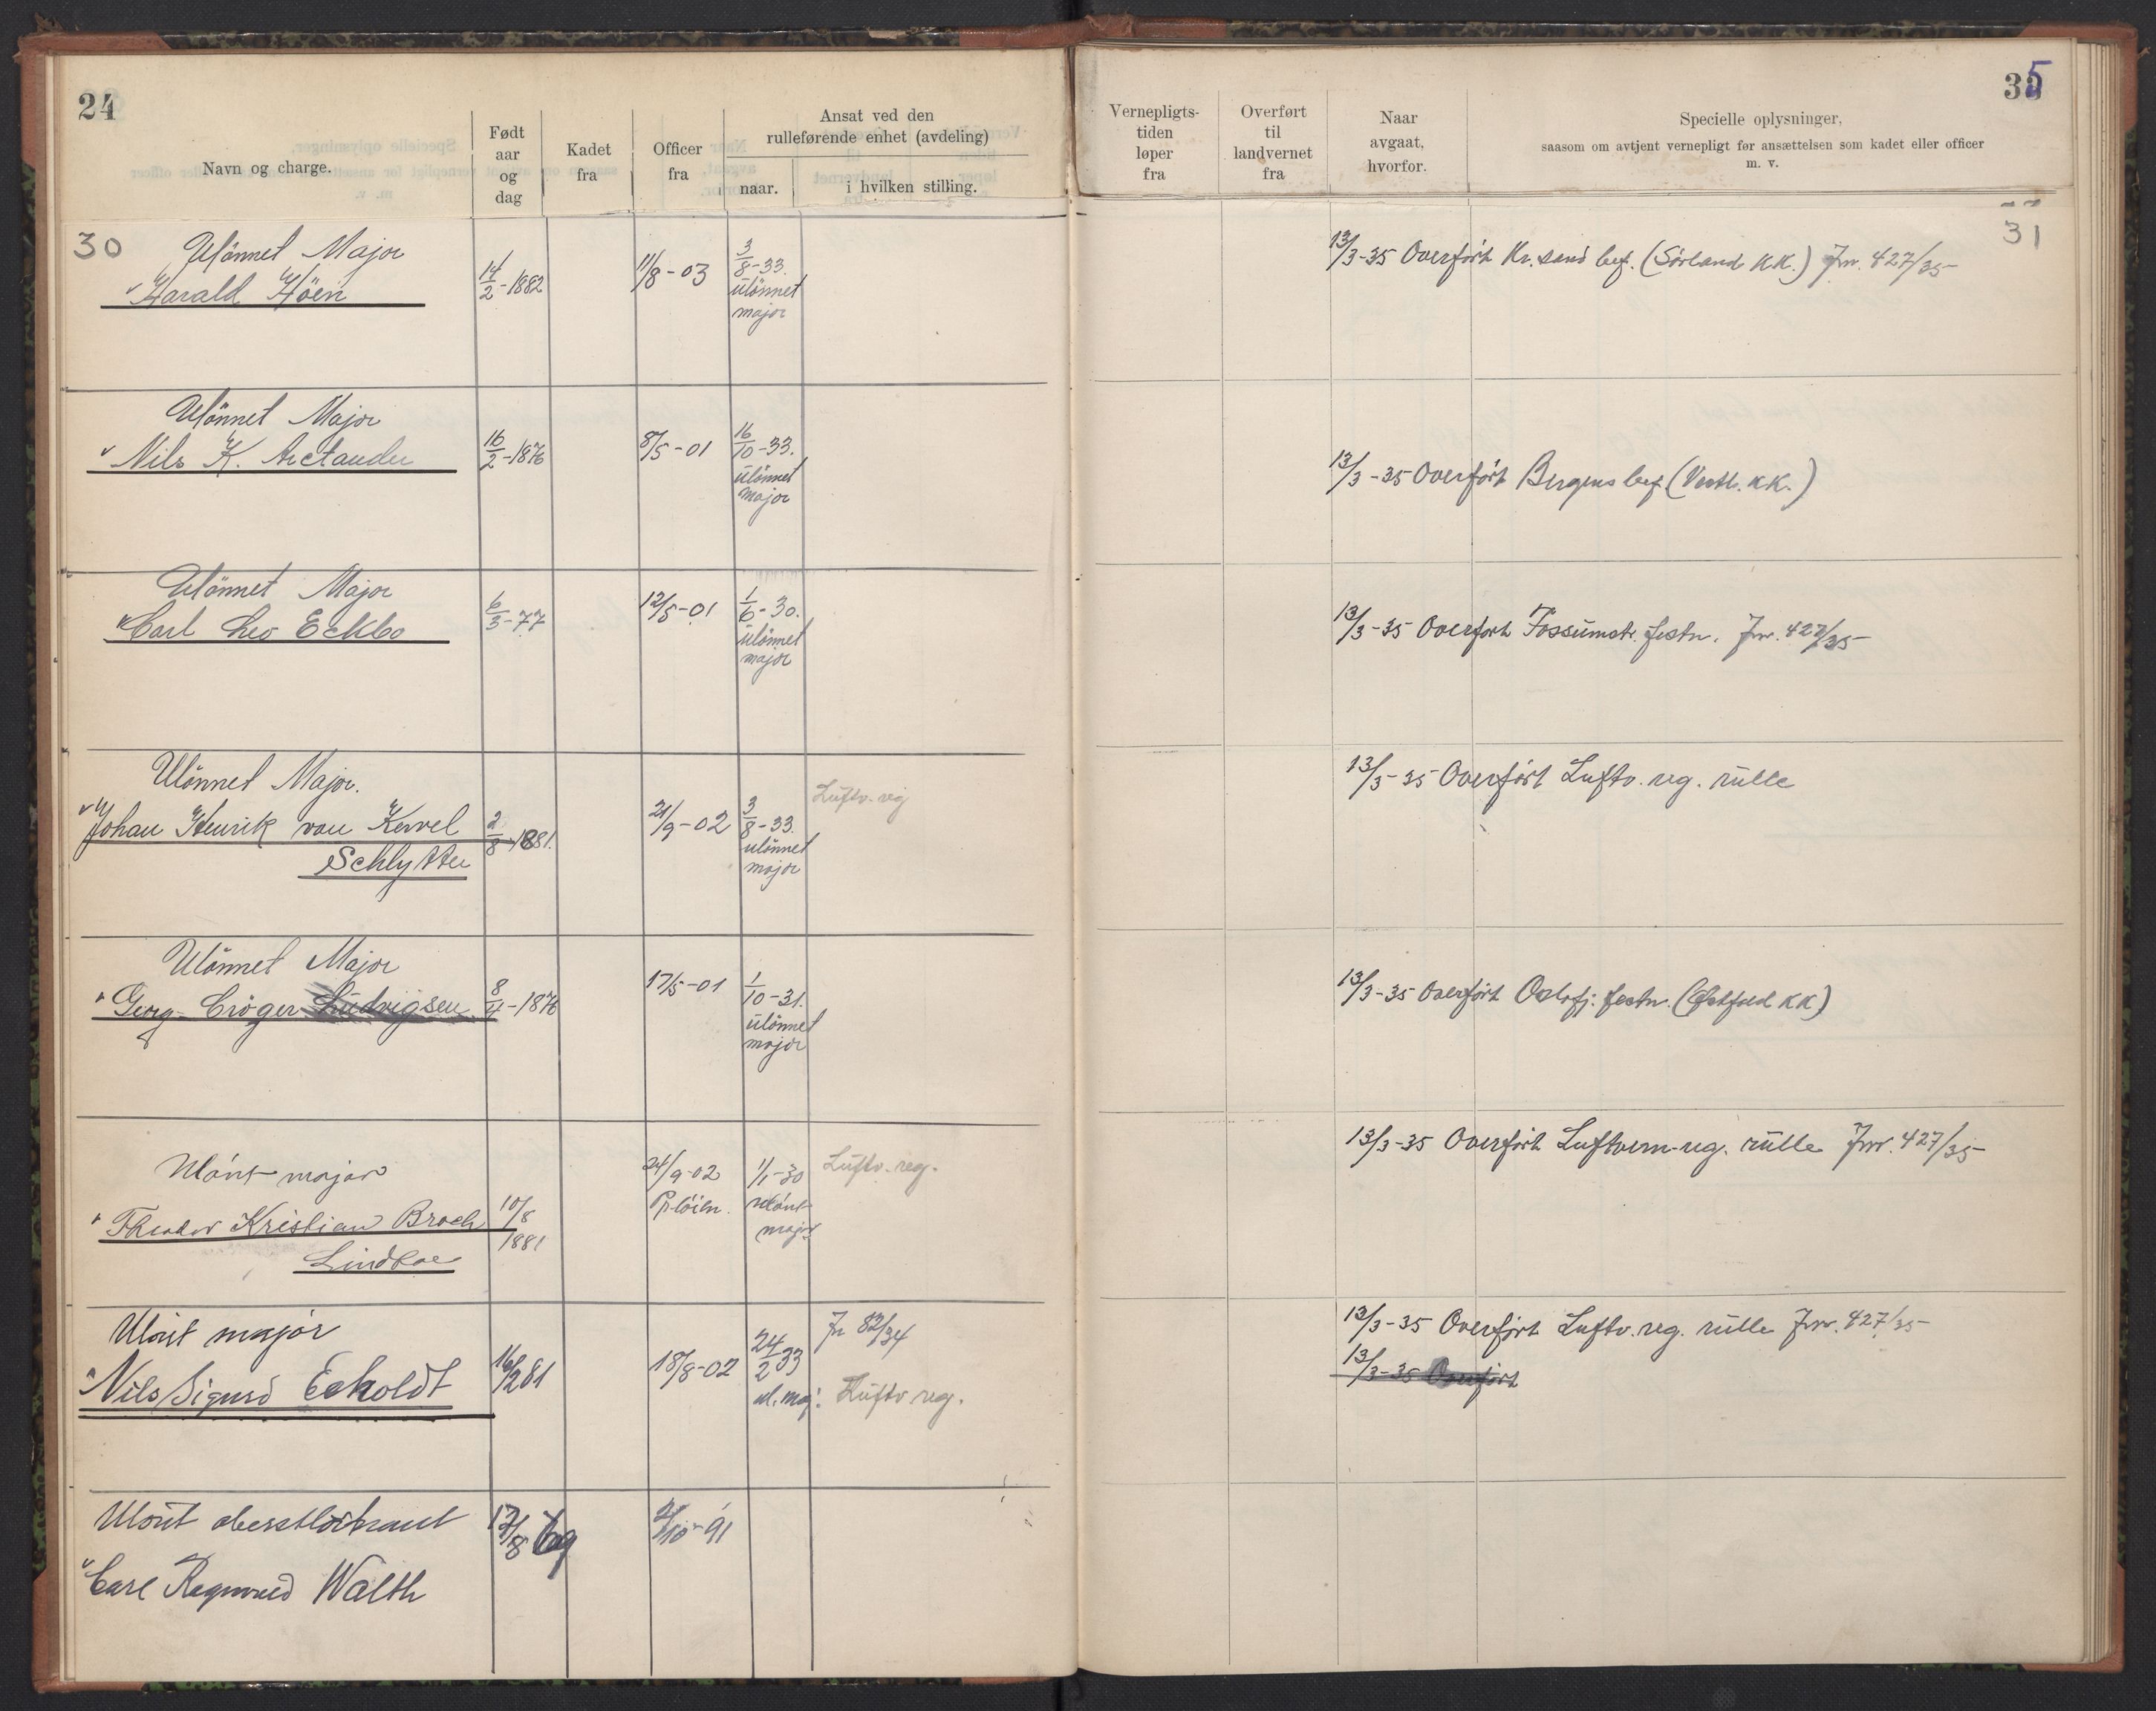 24
Navn og charge.
Født
aar
og
dag
Kadet
fra
Officer
fra
Ansat ved den
rulleførende enhet (avdeling)
naar.
i hvilken stilling.
Vernepligts-
tiden
løper
fra
Overført
til
landvernet
fra
Naar
avgaat,
hvorfor.
Specielle oplysninger,
saasom om avtjent vernepligt før ansættelsen som kadet eller officer
m. v.
35
30
31
Ulönnet Major
Harald Höen
14/2-1882
11/8-03
3/8-33.
ulönnet
major
13/3-35 Overfört Kr.sand bef. (Sörland KK.) Jnr. 427/35
Ulönnet Major
Nils K. Arctander
16/2-1876
8/5-01
16/10-33.
ulönnet
major
13/3-35 Overfört Bergens bef. (Vestl. KK.)
Ulönnet Major
Carl Leo Eckbo
6/3-77
12/5-01
1/6-30.
ulönnet
major
13/3-35 Overfört Fossumstr. festn. Jnr. 427/35
Ulönnet Major.
Johan Henrik von Kervel
Schlytter
2/8-1881.
21/9-02
3/8-33.
ulönnet
major
Luftv. reg
13/3-35 Overfört Luftv. reg. rulle
Ulönnet Major
Georg Cröger Ludvigsen
8/4-1876
17/5-01
1/10-31.
ulönnet
major
13/3-35 Overfört Oslofj. festn. (Østfold KK)
Ulönt major
Theodor Kristian Broch
Lindboe
10/8
1881
24/9-02
Pr.löitn.
1/1-30
ulönt
major
Luftv. reg.
13/3-35 Overfört Luftvern-reg. rulle Jnr. 427/35
Ulönt major
Nils Sigurd Eckoldt
16/2 81
18/8-02
24/2 33
ul. maj.
Jr 82/34
Luftv reg.
13/3-35 Overfört Luftv. reg. rulle Jnr. 427/35
13/3-35 Overfört
Ulönt oberstlöitnant
Carl Ragnvald Walth
/10-91